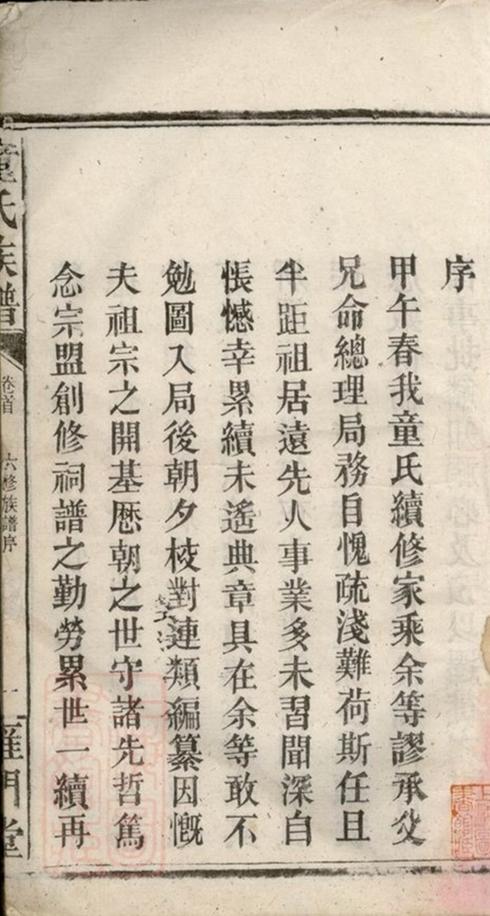 序
甲午春我童氏續修家乘余等謬承父
兄命總理局務自愧疏淺難荷斯任且
半距祖居遠先人事業多未習聞深自
悵憾幸累續未遙典章具在余等敢不
勉圖入局後朝夕校對連類編纂因慨
夫祖宗之開基歷朝之世守諸先哲篤
念宗盟創修祠譜之勤勞累世一續再
童氏族譜
卷首
六修族譜序
一
雁門堂